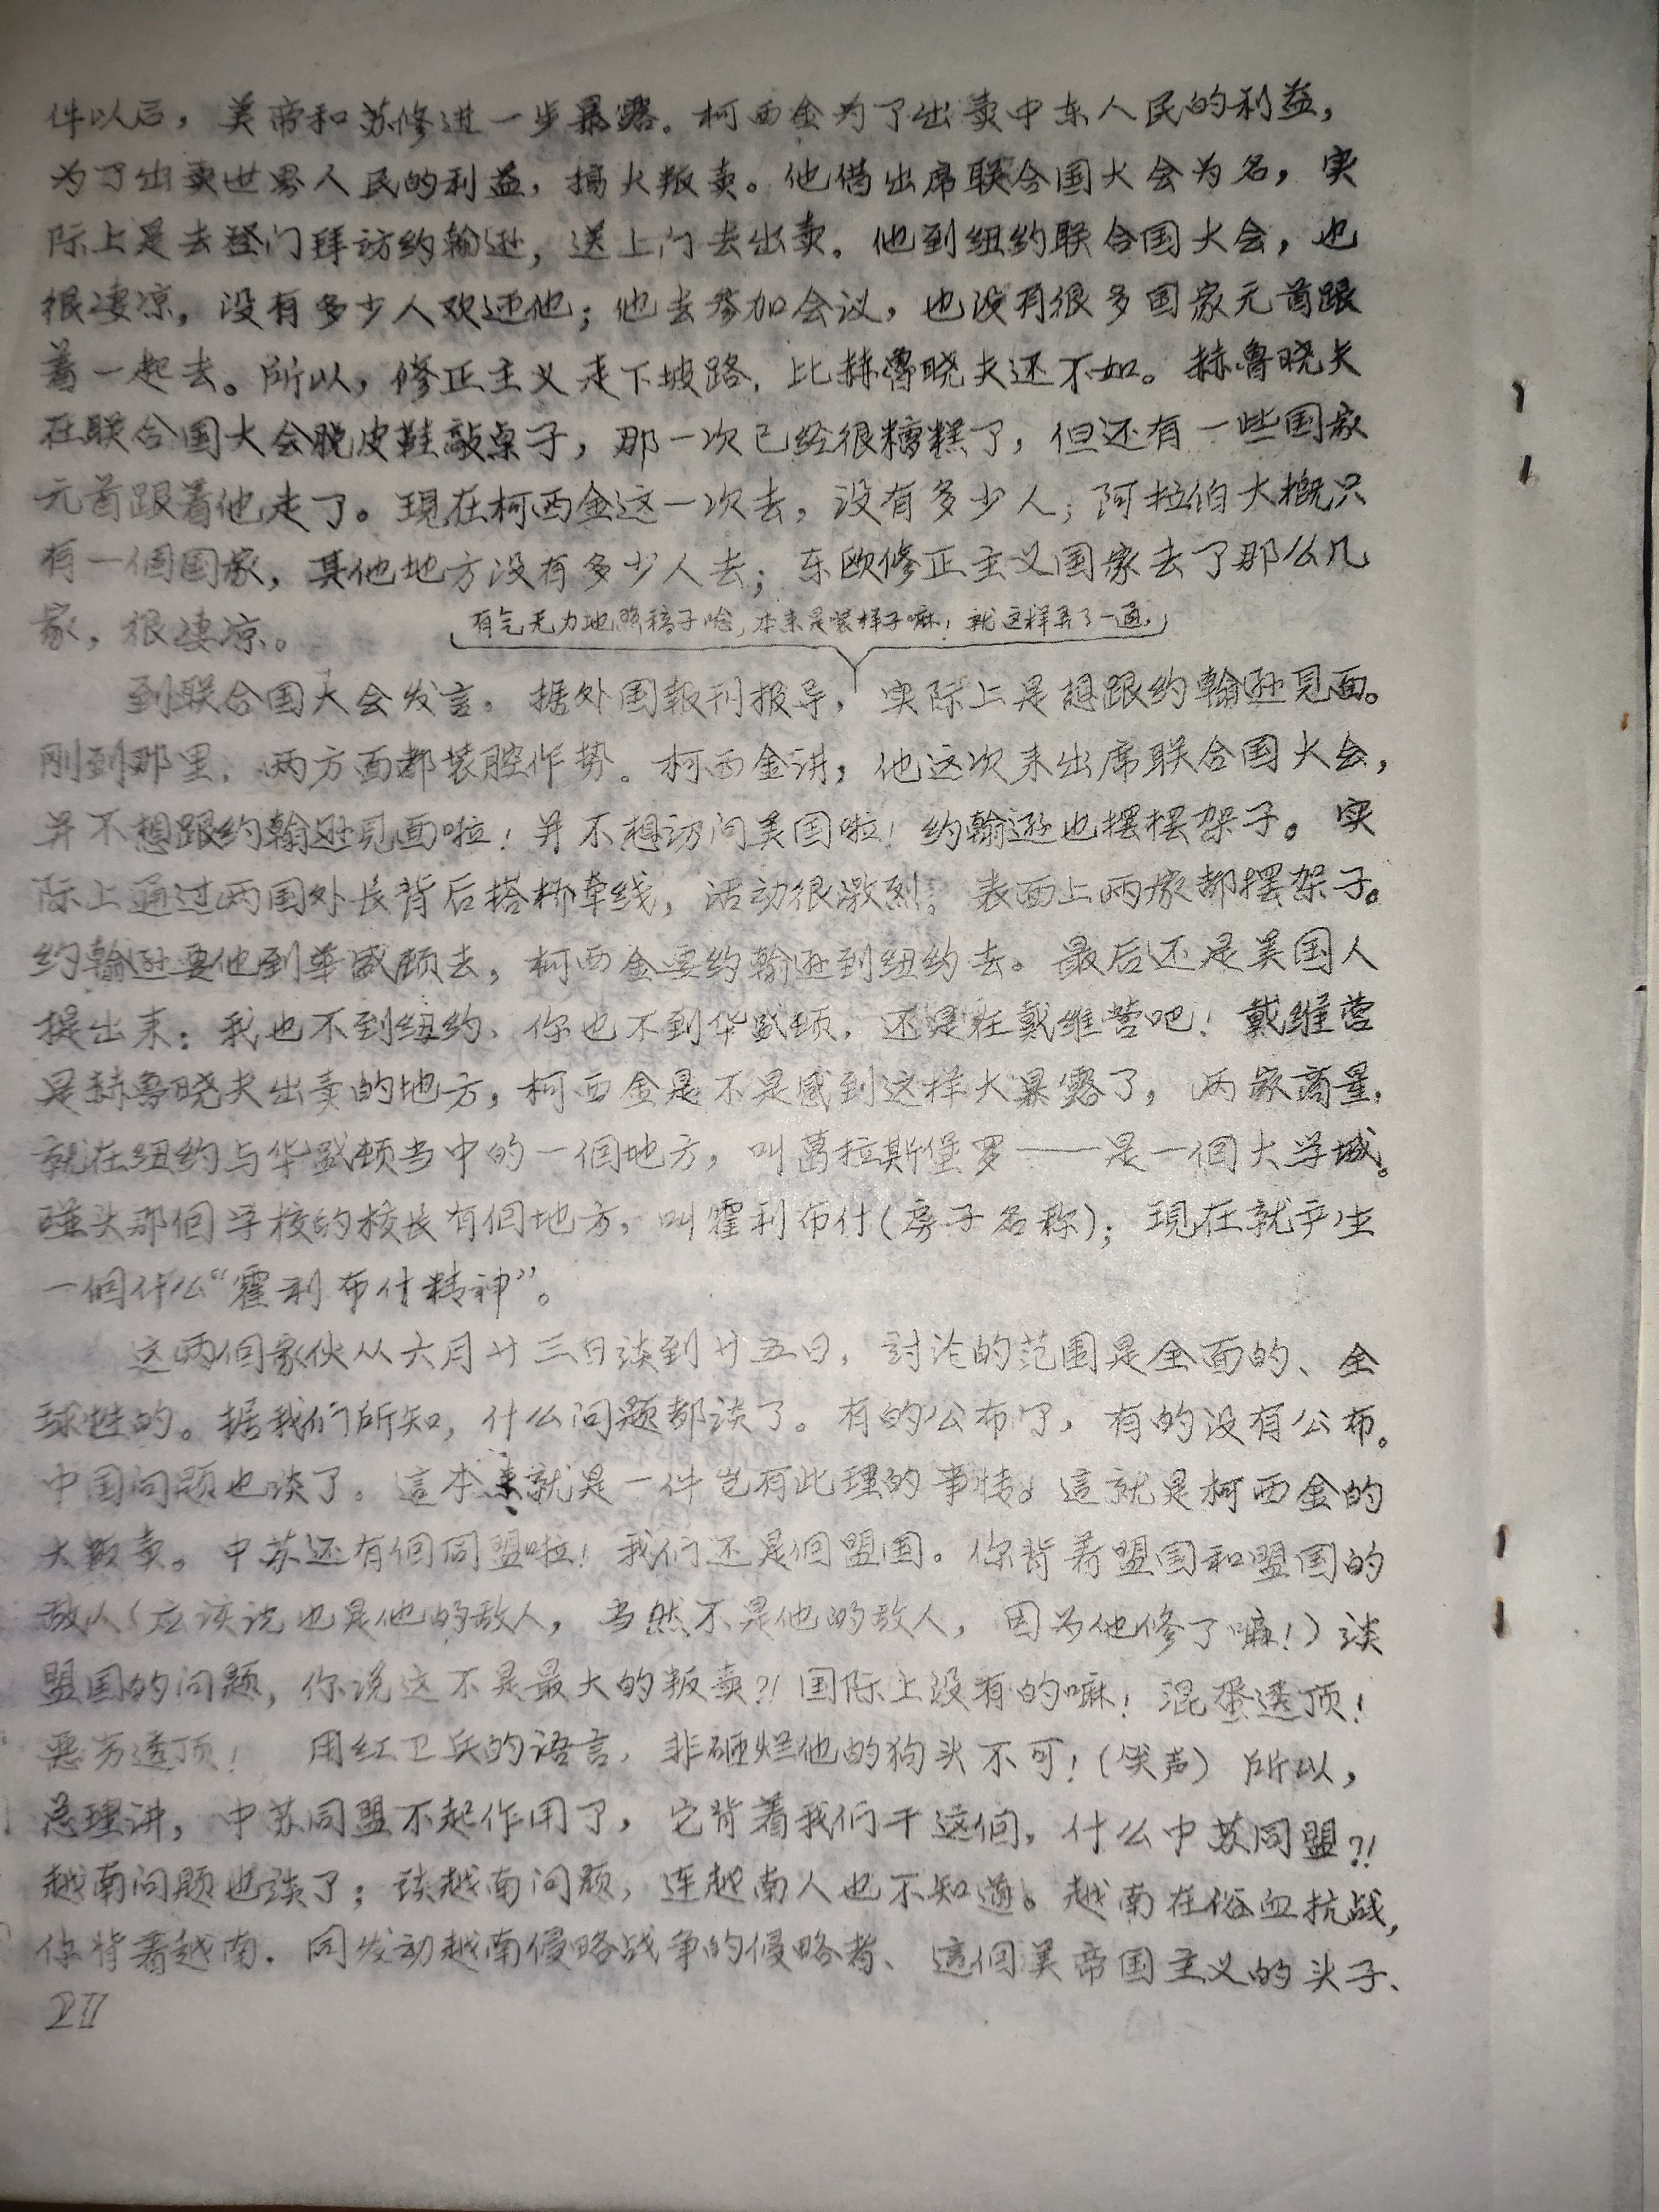 件以后，美帝和苏修进一步暴露。柯西金为了出卖中东人民的利益，
为了出卖世界人民的利益，搞大叛卖。他借出席联合国大会为名，实
际上是去登门拜访约翰逊，送上门去出卖。他到纽约联合国大会，也
很凄凉，没有多少人欢迎他；他去参加会议，也没有很多国家元首跟
着一起去。所以，修正主义走下坡路，比赫鲁晓夫还不如。赫鲁晓夫
在联合国大会脱皮鞋敲桌子，那一次已经很糟糕了，但还有一些国家
元首跟着他走了。現在柯西金这一次去，没有多少人；阿拉伯大概只
有一個国家，其他地方没有多少人去；东欧修正主义国家去了那么几
家，很凄凉。
有气无力地照稿子唸，本来是装样子嘛！就这样弄了一通，
到联合国大会发言。据外国报刊报导，实际上是想跟约翰逊見面。
刚到那里，两方面都装腔作势。柯西金讲，他这次来出席联合国大会，
并不想跟约翰逊見面啦！并不想访问美国啦！约翰逊也摆摆架子。实
际上通过两国外长背后搭桥牵线，活动很激烈；表面上两家都摆架子。
约翰逊要他到华盛顿去，柯西金要约翰逊到纽约去。最后还是美国人
提出来：我也不到纽约、你也不到华盛顿，还是在戴维营吧！戴维营
是赫鲁晓夫出卖的地方，柯西金是不是感到这样太暴露了，两家商量，
就在纽约与华盛顿当中的一個地方，叫葛拉斯堡罗——是一個大学城。
碰头那個学校的校长有個地方，叫霍利布什(房子名称)；現在就产生
一個什么“霍利布什精神”。
这两個家伙从六月廿三日谈到廿五日，討论的范围是全面的、全
球性的。据我们所知，什么问题都谈了。有的公布了，有的没有公布。
中国问题也谈了。這本来就是一件岂有此理的事情。這就是柯西金的
大叛卖。中苏还有個同盟啦！我们还是個盟国。你背着盟国和盟国的
敌人(应该说也是他的敌人，当然不是他的敌人，因为他修了嘛！)谈
盟国的问题，你说这不是最大的叛卖?!国际上没有的嘛！混蛋透顶！
恶劣透顶！ 用红卫兵的语言，非砸烂他的狗头不可！(笑声)所以，
总理讲，中苏同盟不起作用了，它背着我们干這個，什么中苏同盟?!
越南问题也谈了；谈越南问题，连越南人也不知道。越南在浴血抗战，
你背着越南，同发动越南侵略战争的侵略者、這個美帝国主义的头子、